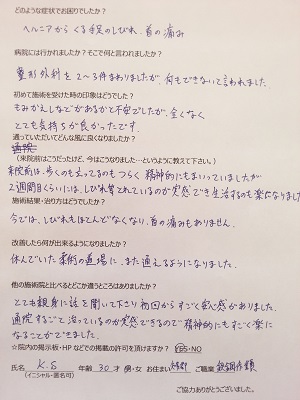 どのような症状でお困りでしたか？
ヘルニアからくる手足のしびれ、首の痛み
病院には行かれましたか？そこで何と言われましたか？
整形外科を2〜3件まわりましたが、何もできないと言われました。
初めて施術を受けた時の印象はどうでした？
もみかえしなどがあるかと不安でしたが、全くなく
とても気持ちが良かったです。
通っていただいてどんな風に良くなりましたか？
（来院前はこうだったけど、今はこうなりました…というように教えて下さい。）
来院前は、歩くのも立ってるのもつらく精神的にもまいっていましたが
2週間目くらいには、しびれ等とれているのが実感でき生活するのも楽になりました
施術結果・治り方はどうでしたか？
今では、しびれもほとんどなくなり、首の痛みもありません。
改善したら何が出来るようになりましたか？
休んでいた柔術の道場に、また通えるようになりました。
他の施術院と比べるとどこか違うところはありましたか？
とても親身に話を聞いて下さり初回からすごく安心感がありました。
通院するごとに治っているのが実感できるので精神的にもすごく楽に
なることができました。
☆院内の掲示板・HPなどでの掲載の許可を頂けますか？ YES・NO
氏名 K.S 年齢 30才 男・女 お住まい ご職業
（イニシャル・匿名可）
ご協力ありがとうございました。